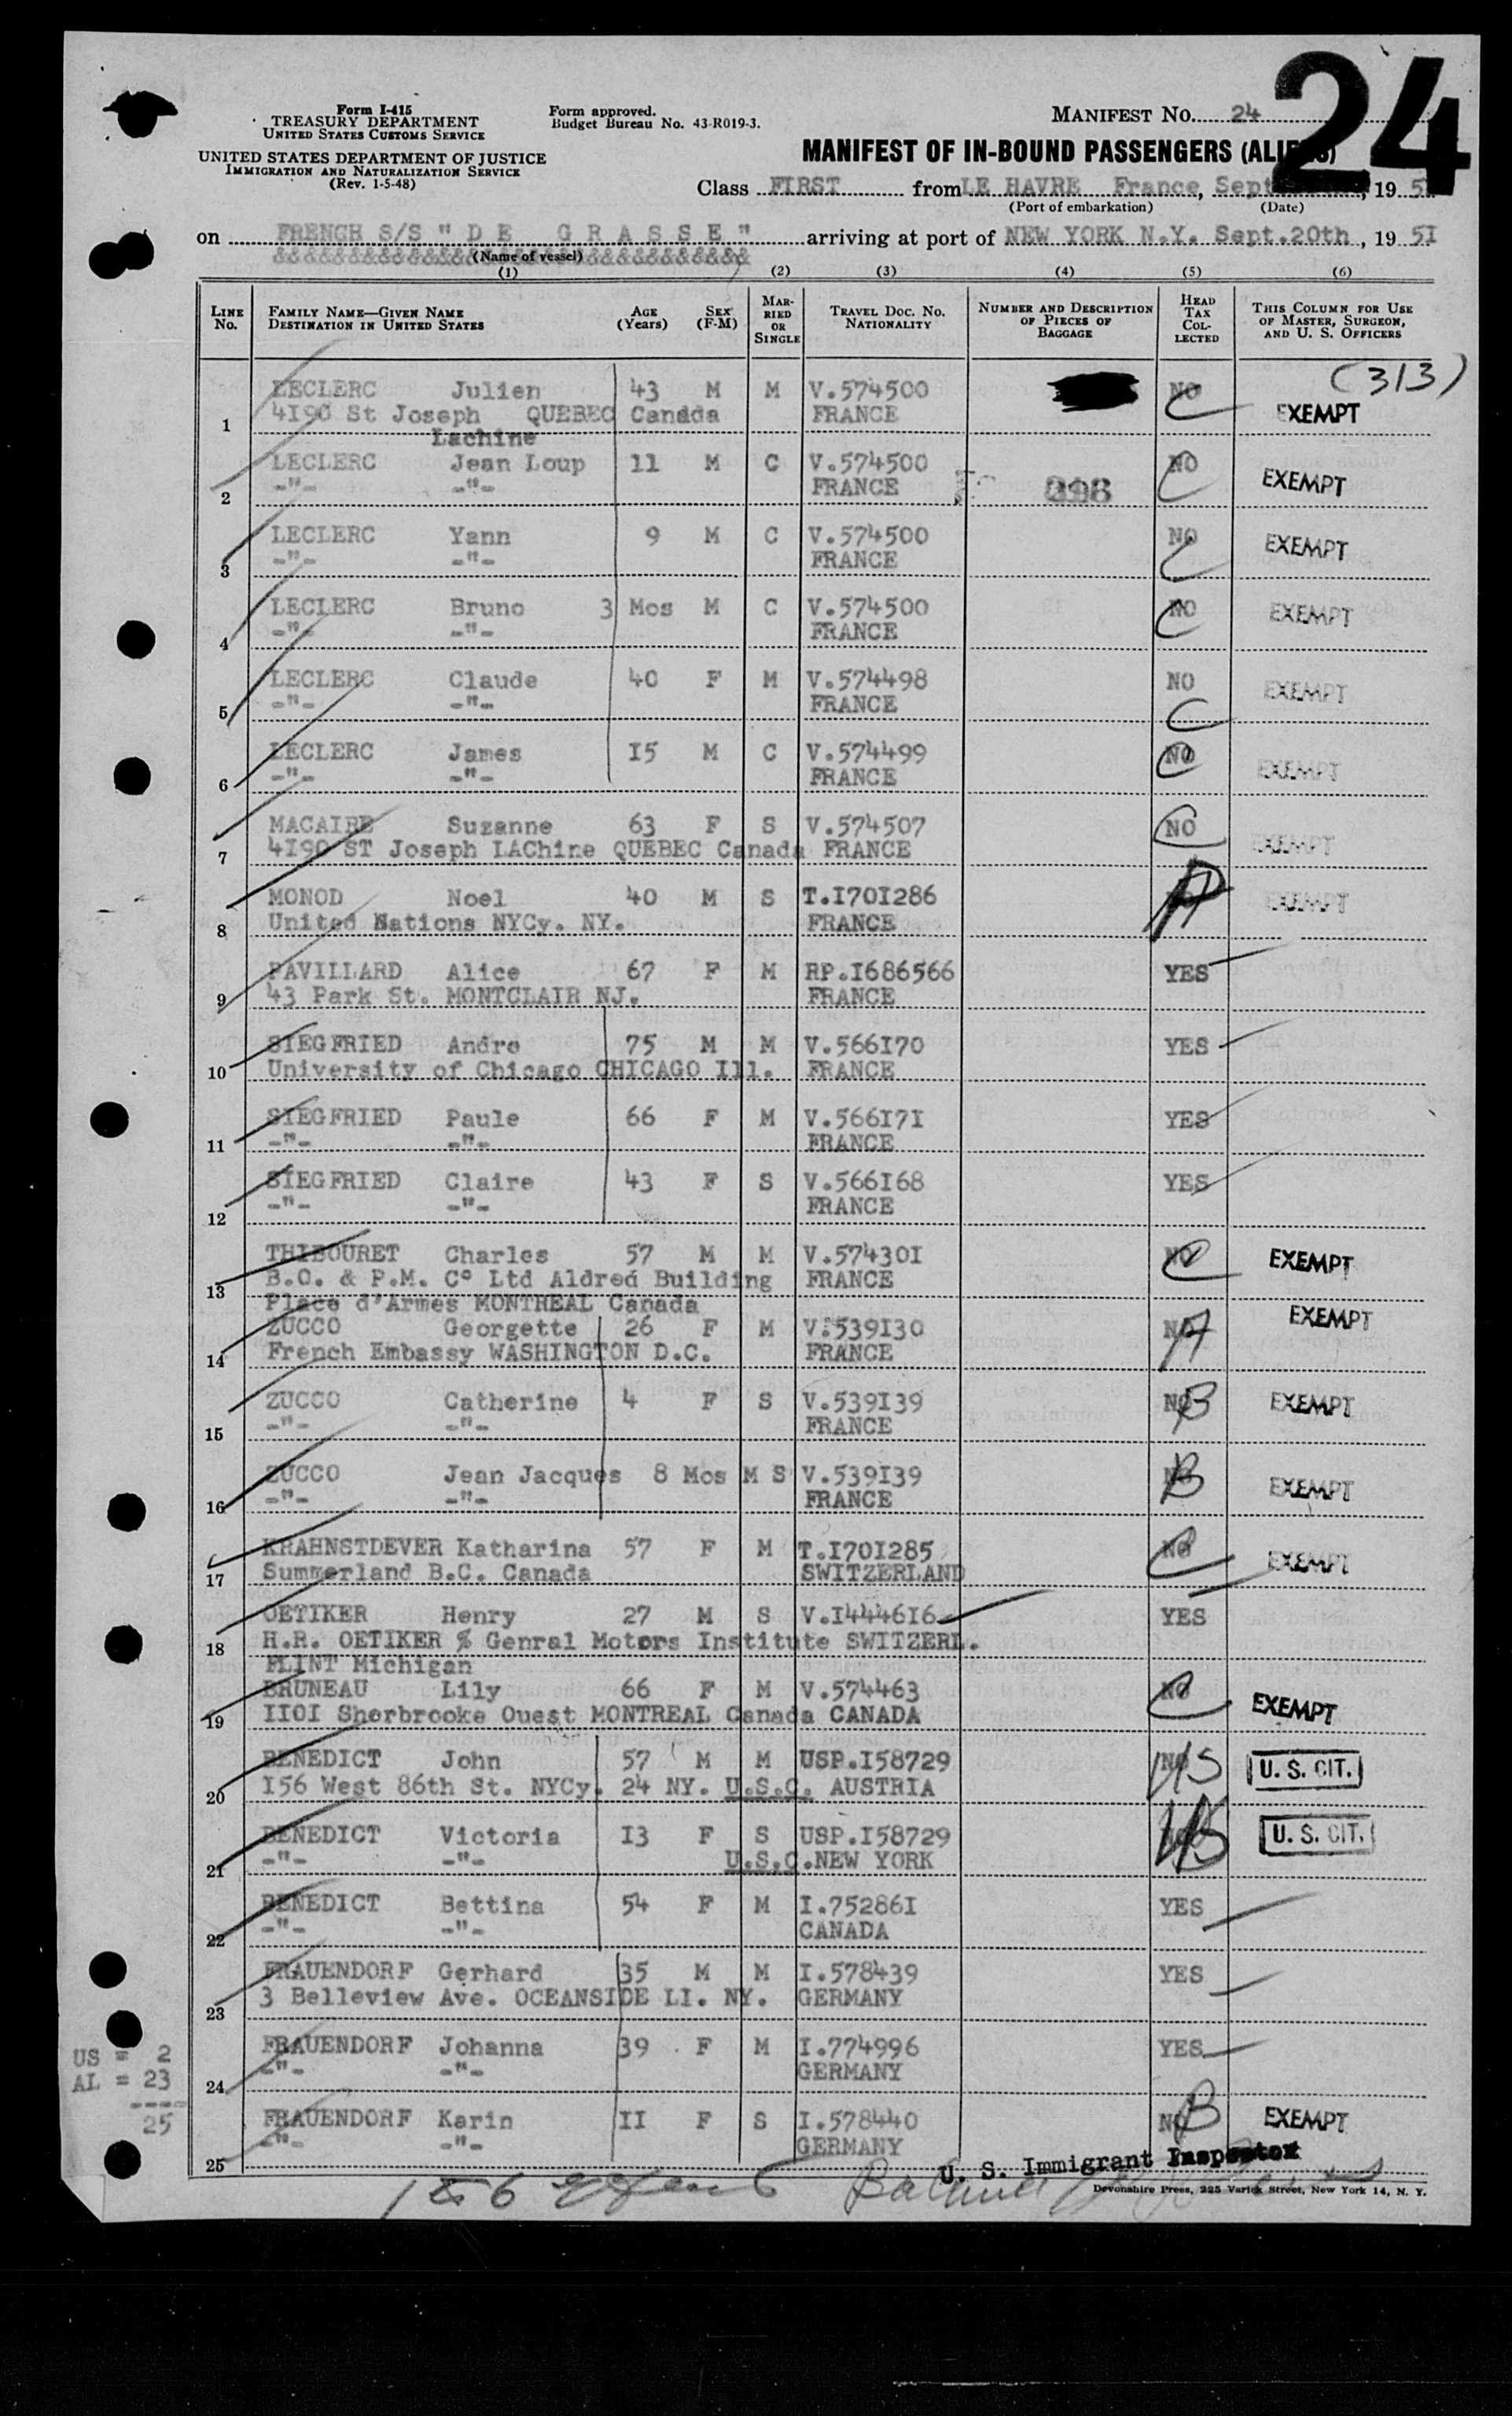 24
Form I-415
TREASURY DEPARTMENT
UNITED STATES CUSTOMS SERVICE
Form approved.
Budget Bureau No. 43-R019-3.
MANIFEST No. 24
UNITED STATES DEPARTMENT OF JUSTICE
IMMIGRATION AND NATURALIZATION SERVICE
(Rev. 1-5-48)
MANIFEST OF IN-BOUND PASSENGERS (ALIENS)
Class FIRST from LE HAVRE France, Sept , 19 51
(Port of embarkation) (Date)
on FRENCH S/S " D E G R A S S E " arriving at port of NEW YORK N.Y. Sept.20th , 19 5I
(Name of vessel)
(1) (2) (3) (4) (5) (6)
LINE No. FAMILY NAME—GIVEN NAME DESTINATION IN UNITED STATES AGE (Years) SEX (F-M) MARRIED OR SINGLE TRAVEL DOC. No. NATIONALITY NUMBER AND DESCRIPTION OF PIECES OF BAGGAGE HEAD TAX COLLECTED THIS COLUMN FOR USE OF MASTER, SURGEON, AND U. S. OFFICERS
(313)
LECLERC Julien 43 M M V.574500 NO C
1 4I90 St Joseph QUEBEC Canada FRANCE EXEMPT
Lachine
LECLERC Jean Loup 11 M C V.574500 NO C EXEMPT
2 -"- -"- FRANCE
LECLERC Yann 9 M C V.574500 NO C EXEMPT
3 -"- -"- FRANCE
LECLERC Bruno 3 Mos M C V.574500 NO C EXEMPT
4 -"- -"- FRANCE
LECLERC Claude 40 F M V.574498 NO C EXEMPT
5 -"- -"- FRANCE
LECLERC James I5 M C V.574499 NO C EXEMPT
6 -"- -"- FRANCE
MACAIRE Suzanne 63 F S V.574507 NO C EXEMPT
7 4I90 ST Joseph LAChine QUEBEC Canada FRANCE
MONOD Noel 40 M S T.I70I286 A EXEMPT
8 United Nations NYCy. NY. FRANCE
PAVILLARD Alice 67 F M RP.I686566 YES
9 43 Park St. MONTCLAIR NJ. FRANCE
SIEGFRIED Andre 75 M M V.566I70 YES
10 University of Chicago CHICAGO Ill. FRANCE
SIEGFRIED Paule 66 F M V.566I7I YES
11 -"- -"- FRANCE
SIEGFRIED Claire 43 F S V.566I68 YES
12 -"- -"- FRANCE
THIBOURET Charles 57 M M V.57430I NO C EXEMPT
13 B.C. & P.M. C° Ltd Aldred Building FRANCE
Place d'Armes MONTREAL Canada
ZUCCO Georgette 26 F M V.539I30 NO A EXEMPT
14 French Embassy WASHINGTON D.C. FRANCE
ZUCCO Catherine 4 F S V.539I39 NO B EXEMPT
15 -"- -"- FRANCE
ZUCCO Jean Jacques 8 Mos M S V.539I39 B EXEMPT
16 -"- -"- FRANCE
KRAHNSTDEVER Katharina 57 F M T.I70I285 NO C EXEMPT
17 Summerland B.C. Canada SWITZERLAND
OETIKER Henry 27 M S V.I4446I6 YES
18 H.R. OETIKER % Genral Motors Institute SWITZERL.
FLINT Michigan
BRUNEAU Lily 66 F M V.574463 NO C EXEMPT
19 II0I Sherbrooke Ouest MONTREAL Canada CANADA
BENEDICT John 57 M M USP.I58729 NO US U. S. CIT.
20 I56 West 86th St. NYCy. 24 NY. U.S.C. AUSTRIA
BENEDICT Victoria I3 F S USP.I58729 US U. S. CIT.
21 -"- -"- U.S.C.NEW YORK
BENEDICT Bettina 54 F M I.75286I YES
22 -"- -"- CANADA
FRAUENDORF Gerhard 35 M M I.578439 YES
23 3 Belleview Ave. OCEANSIDE LI. NY. GERMANY
FRAUENDORF Johanna 39 F M I.774996 YES
24 -"- -"- GERMANY
FRAUENDORF Karin II F S I.578440 NO B EXEMPT
25 -"- -"- GERMANY
US = 2
AL = 23
----
25
U. S. Immigrant Inspector
Devonshire Press, 225 Varick Street, New York 14, N. Y.